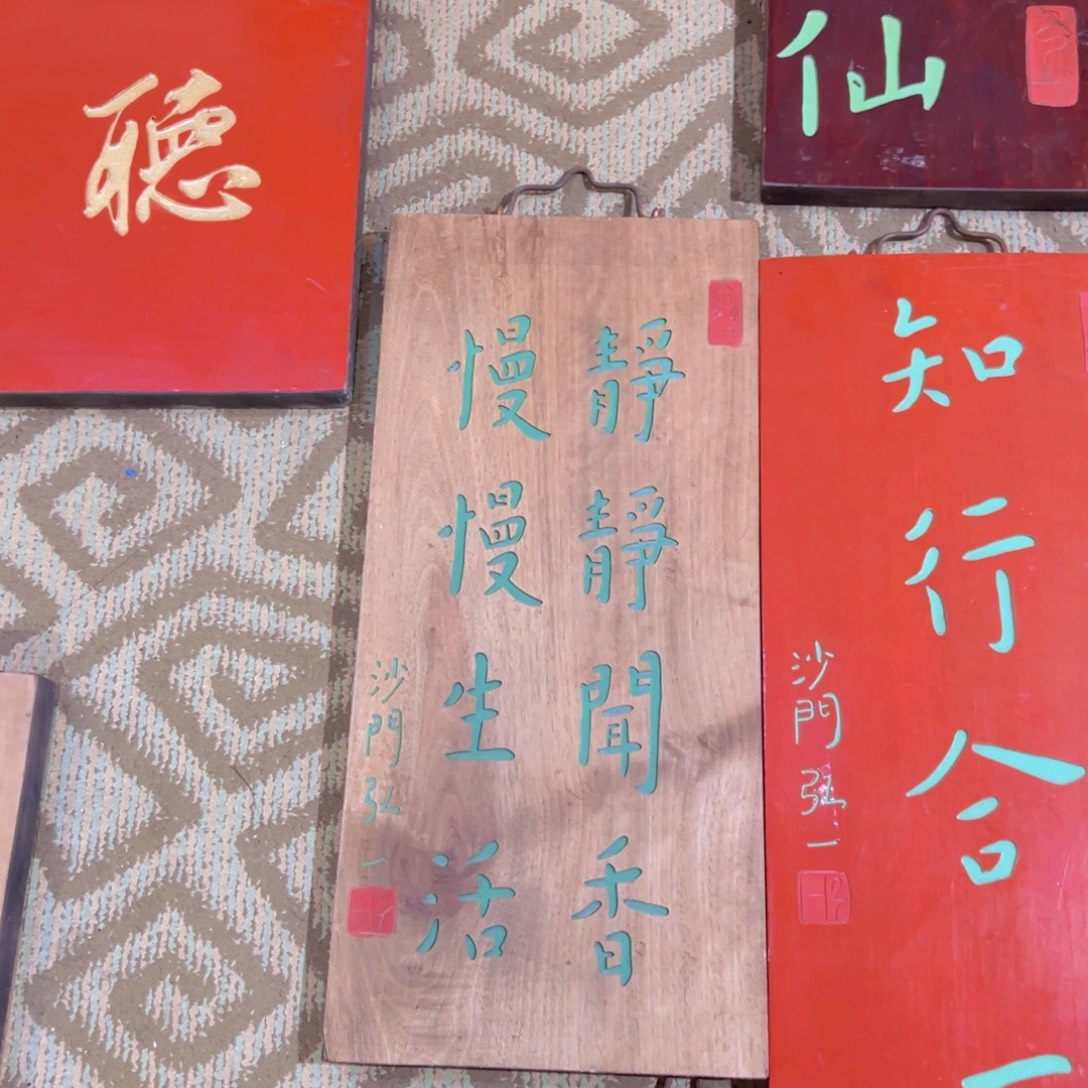 聽
仙
靜靜聞香
慢慢生活
沙門弘一
知行合一
沙門弘一